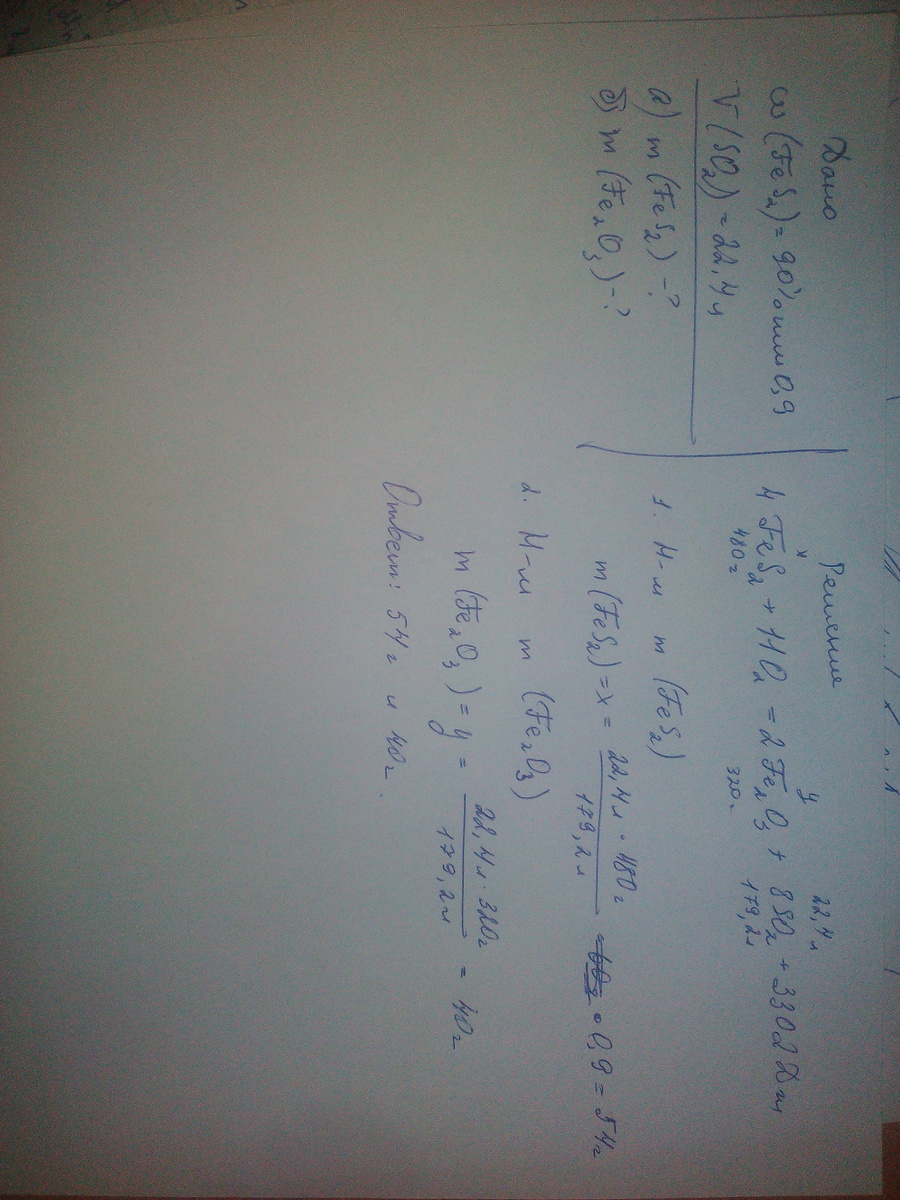 Дано
ω (FeS₂) = 90% или 0,9
V (SO₂) = 22,4 л
а) m (FeS₂) - ?
б) m (Fe₂O₃) - ?
Решение
x y 22,4 л
4 FeS₂ + 11O₂ = 2 Fe₂O₃ + 8 SO₂ + 3302 Дж
480г 320г 179,2л
1. Н-м m (FeS₂)
m (FeS₂) = x = 22,4 л · 480г / 179,2 л · 0,9 = 54г
2. Н-м m (Fe₂O₃)
m (Fe₂O₃) = y = 22,4 л · 320г / 179,2 л = 40г
Ответ: 54г и 40г.